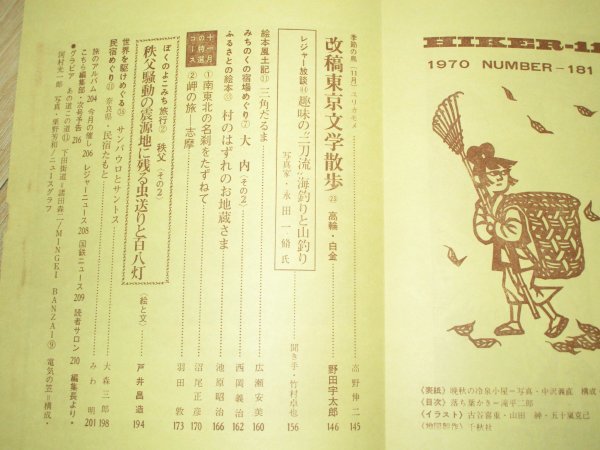 HIKER-11
1970 NUMBER-181
季節の鳥〈11月〉ユリカモメ 高野伸二 145
改稿東京文学散歩㉓ 高輪・白金 野田宇太郎 146
レジャー放談㊹ 趣味の“二刀流”海釣りと山釣り
写真家・永田一脩氏 聞き手・竹村卓也 156
絵本風土記⑪ 三角だるま 広瀬安美 160
みちのくの宿場めぐり⑦ 大内(その2) 西岡義治 162
ふるさとの絵本㉝ 村のはずれのお地蔵さま 池原昭治 166
十一月の特選コース
①南東北の名刹をたずねて 沼尾正彦 170
②岬の旅・志摩 羽田敦 173
ぼくのよこみち旅行② 秩父(その2)
秩父騒動の震源地に残る虫送りと百八灯 〈絵と文〉 戸井昌造 194
世界を駆けめぐる㉘ サンパウロとサントス 大森三郎 198
民宿めぐり⑪ 奈良県・民宿たもと みわ明 201
旅のアルバム 204 今月の催し 206 レジャーニュース 208 国鉄ニュース 209 読者サロン 210 編集長より・
こちら編集部・次号予告 216
●グラビア あの道この道⑪／下田街道＝諸田森二／MINGEI BANZAI⑨ 電気の笠＝構成・
岡村夫一郎 写真・栗野芳和／ニュースグラフ
〈表紙〉晩秋の冷泉小屋＝写真・中沢義直 構成・
〈目次〉落ち葉かき＝滝平二郎
〈イラスト〉古谷喜東・山田紳・五十嵐克己
〈地図制作〉千秋社